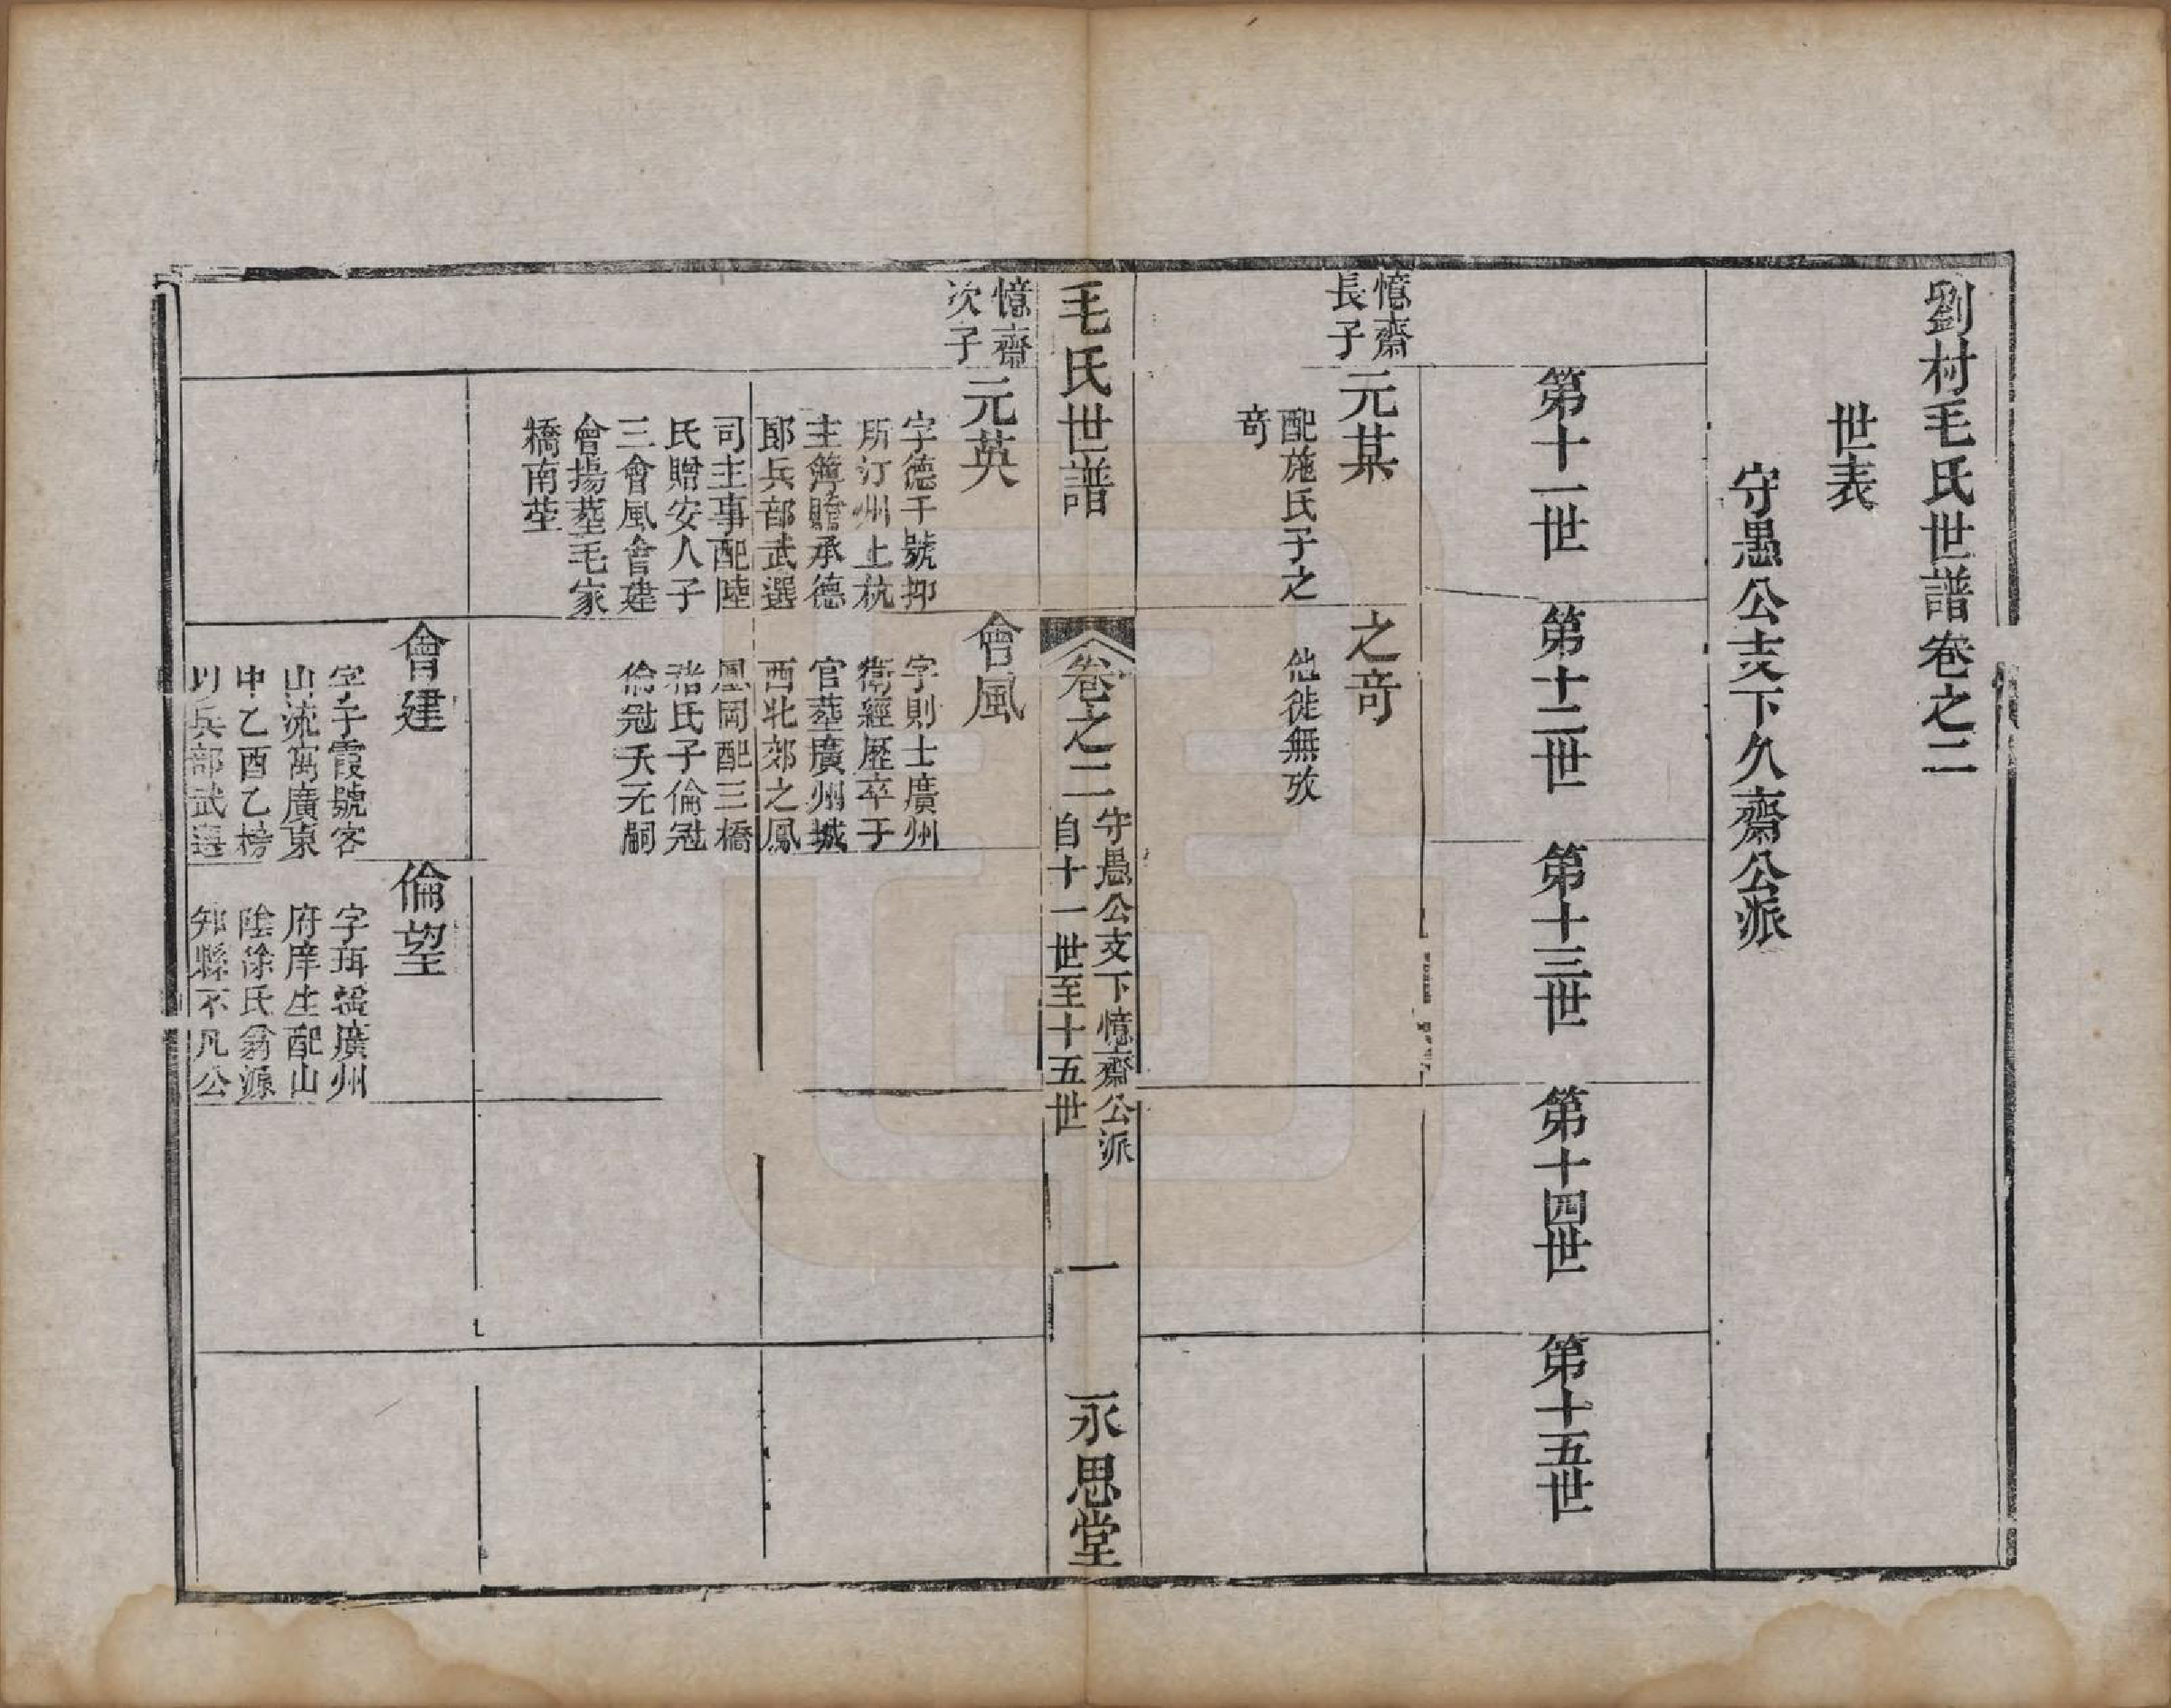 劉村毛氏世譜卷之二
世表
守愚公支下久齋公派
第十一世
第十二世
第十三世
第十四世
第十五世
憶齋
長子
元某
配施氏子之
竒
之竒
他徙無攷
毛氏世譜
卷之二
守愚公支下憶齋公派
自十一世至十五世
一
永思堂
憶齋
次子
元英
字德千號抑
所汀州上杭
主簿贈承德
郎兵部武選
司主事配陸
氏贈安人子
三會風會建
會揚塟毛家
橋南塋
會風
字則士廣州
衛經歷卒于
官塟廣州城
西北郊之鳳
凰岡配三橋
褚氏子倫冠
倫冠夭无嗣
會建
字子霞號客
山流寓廣東
中乙酉乙榜
以兵部武選
倫望
字珥瑤廣州
府庠生配山
陰徐氏翁源
知縣不凡公